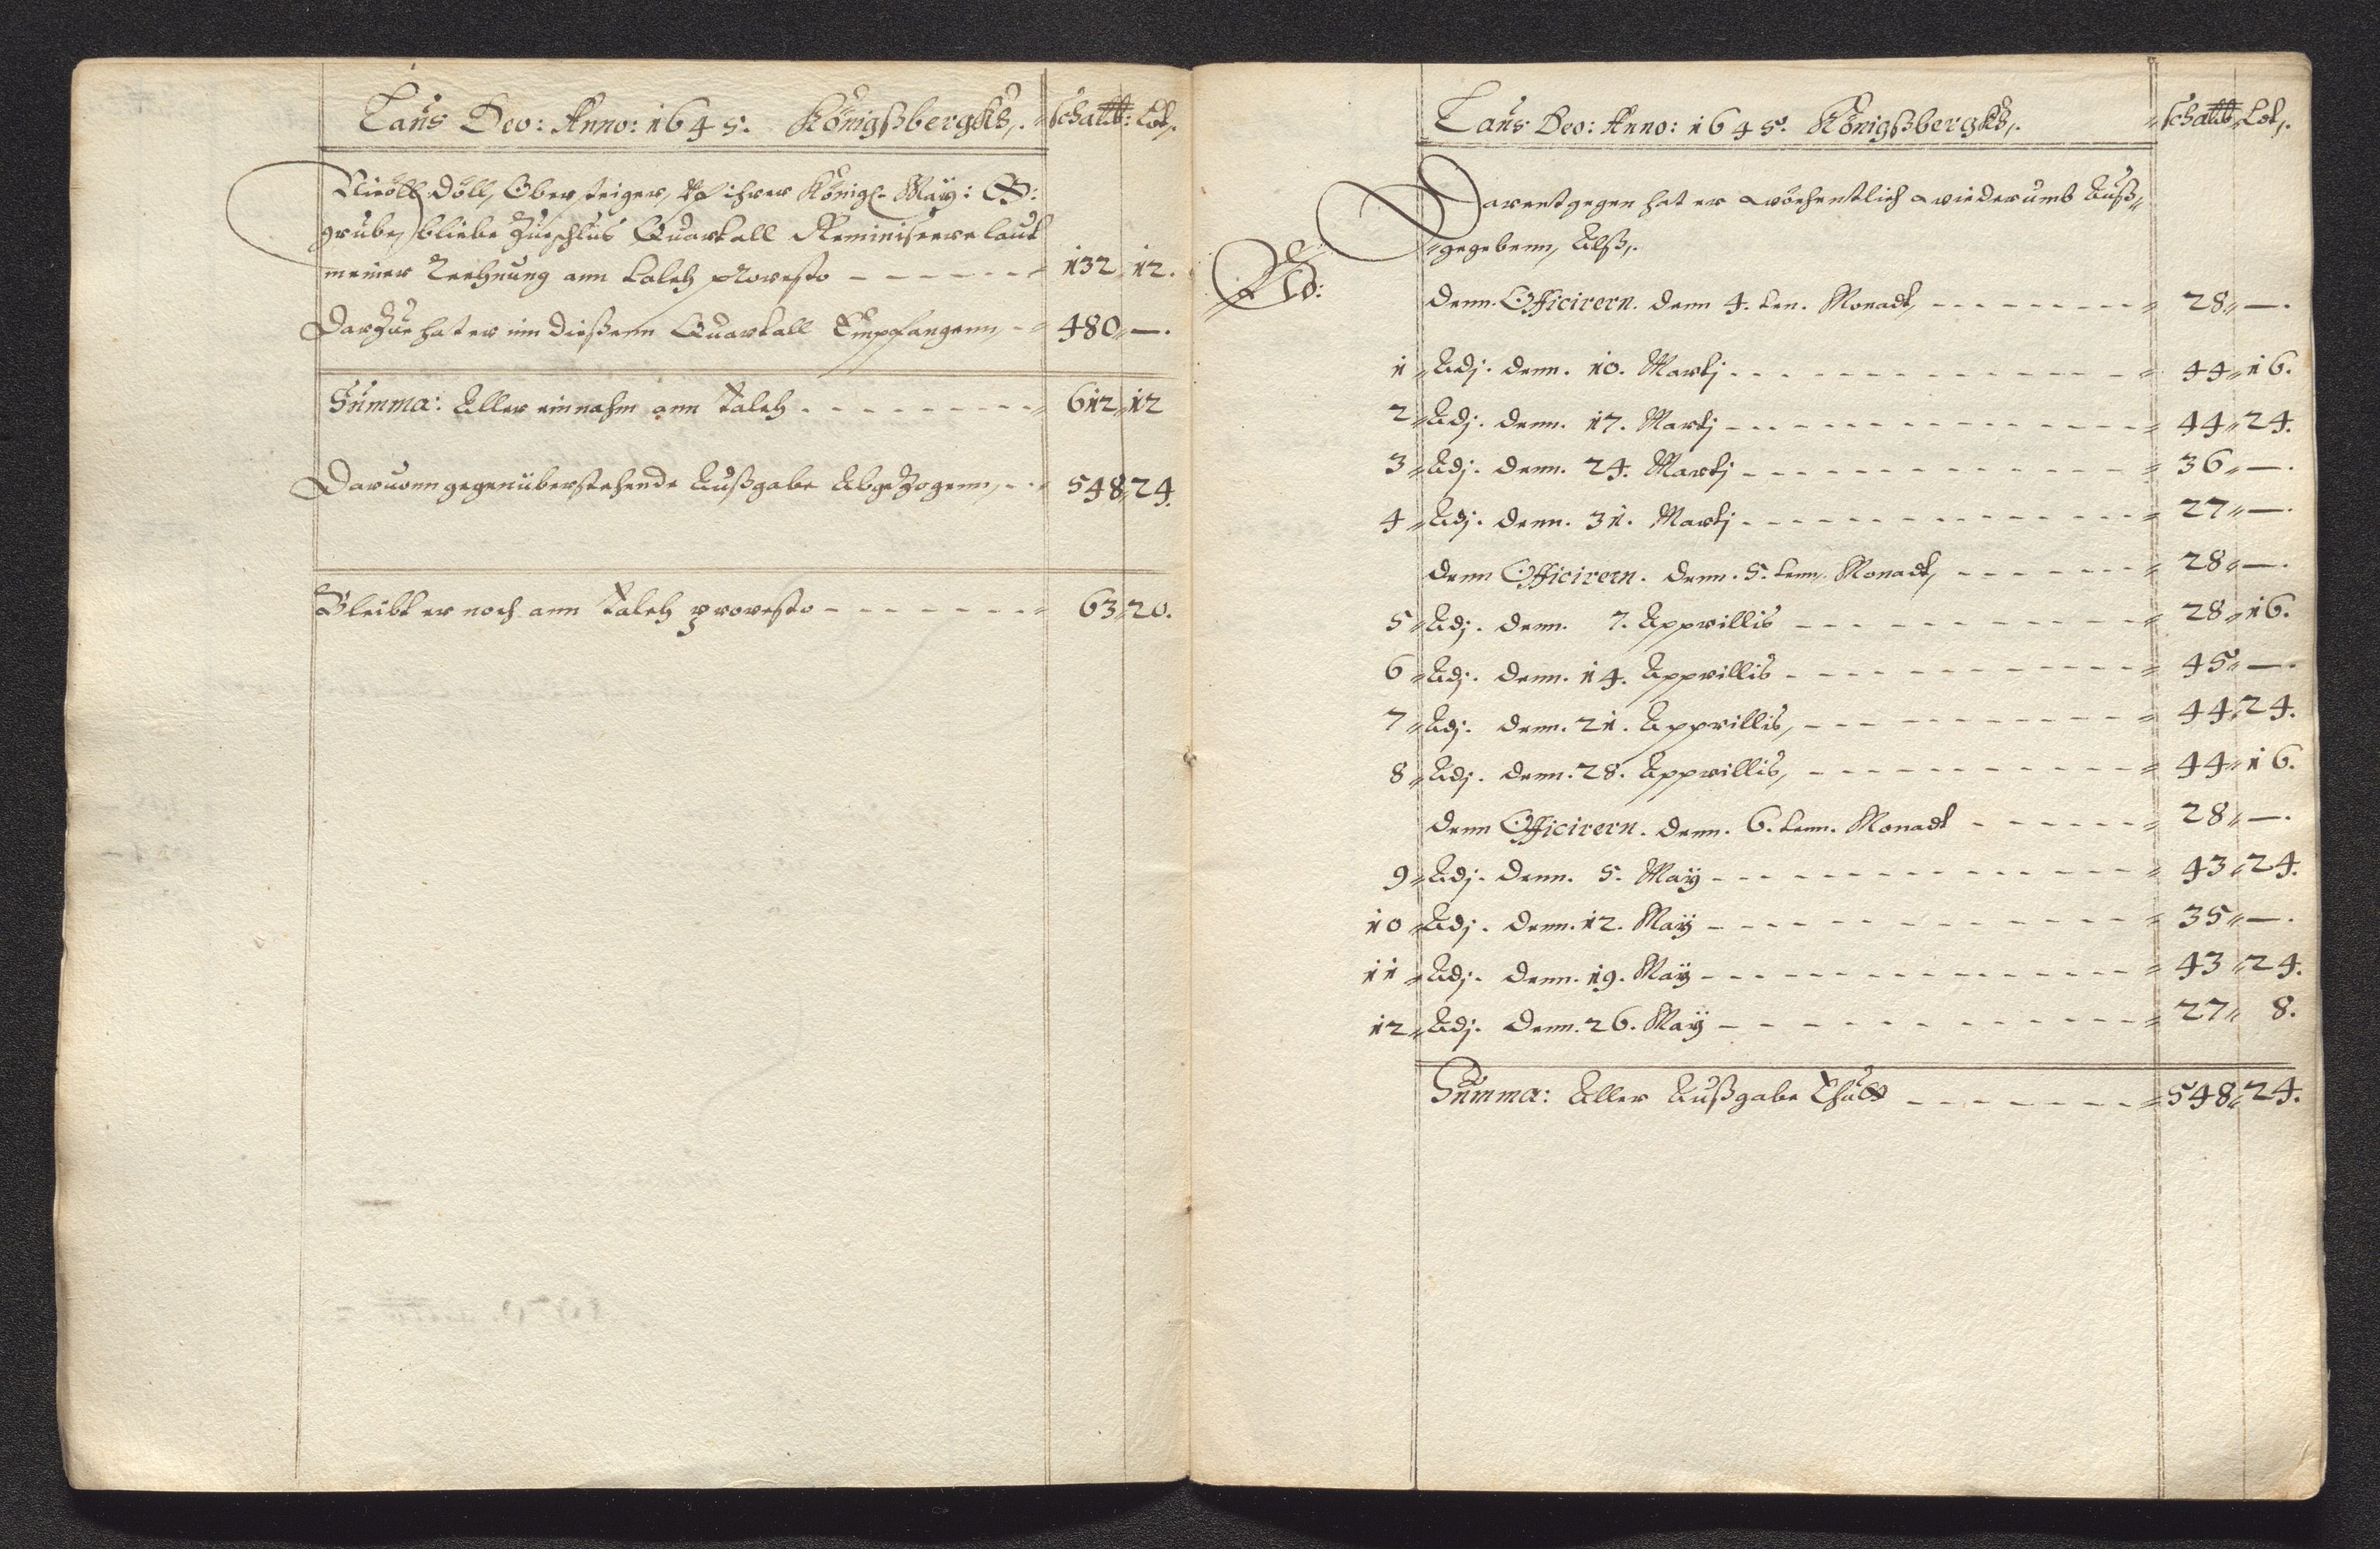 Laus Deo: Anno: 1645. Königßbergks,. Schal℔: Lot,.
Nicoll Döll, Obersteiger, uf ihrer Königl. May: G:
gruben, bliebe Zueschlus Quartall Reminiscere laut
meiner Rechnung ann talch proresto - - - - - - 132 12.
Darzue hat er inn dießenn Quartall Empfangenn, - - 480 „ —.
Summa: Aller einnahm ann talch - - - - - - - - - 612 „ 12
Daruonn gegenüberstehende Außgabe Abgezogenn, - - 548 „ 24.
Bleibt er noch ann talch proresto - - - - - - - - 63 „ 20.
Laus Deo: Anno: 1645. Königßbergks,. Schal℔ Lot,.
Darentgegen hat er wöchentlich wiederumb Auß„
„gegebenn, Alß,.
denn Officirern. denn 4. ten. Monadt, - - - - - - - - 28 „ —.
1 „ Adj. denn. 10. Martj - - - - - - - - - 44 „ 16.
2 „ Adj. denn. 17. Martj - - - - - - - - - 44 „ 24.
3 „ Adj. denn. 24. Martj - - - - - - - - - 36 „ —.
4 „ Adj. denn. 31. Martj - - - - - - - - - 27 „ —.
denn Officirern. denn. 5. tenn. Monadt, - - - - - - 28 „ —.
5 „ Adj. denn. 7. Apprillis - - - - - - - - 28 „ 16.
6 „ Adj. denn. 14. Apprillis - - - - - - - - 45 „ —.
7 „ Adj. denn. 21. Apprillis, - - - - - - - - 44 „ 24.
8 „ Adj. denn. 28. Apprillis, - - - - - - - - 44 „ 16.
denn Officirern. denn. 6. tenn. Monadt - - - - - - 28 „ —.
9 „ Adj. denn. 5. Maÿ - - - - - - - - - 43 „ 24.
10 „ Adj. denn. 12. Maÿ - - - - - - - - - 35 „ —.
11 „ Adj. denn. 19. Maÿ - - - - - - - - - 43 „ 24.
12 „ Adj. denn. 26. Maÿ - - - - - - - - - 27 „ 8.
Summa: Aller Außgabe Thutt - - - - - - - 548 „ 24.